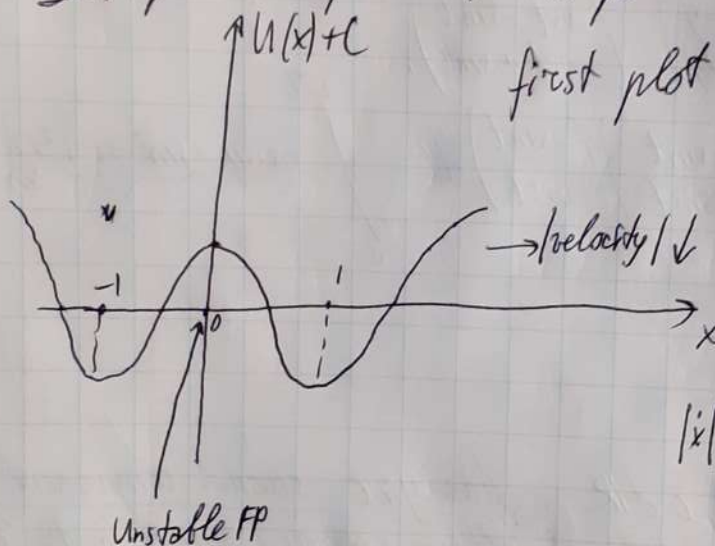 U(x)+C
first plot
→|velocity|↓
-1
0
1
x
|ẋ|
Unstable FP